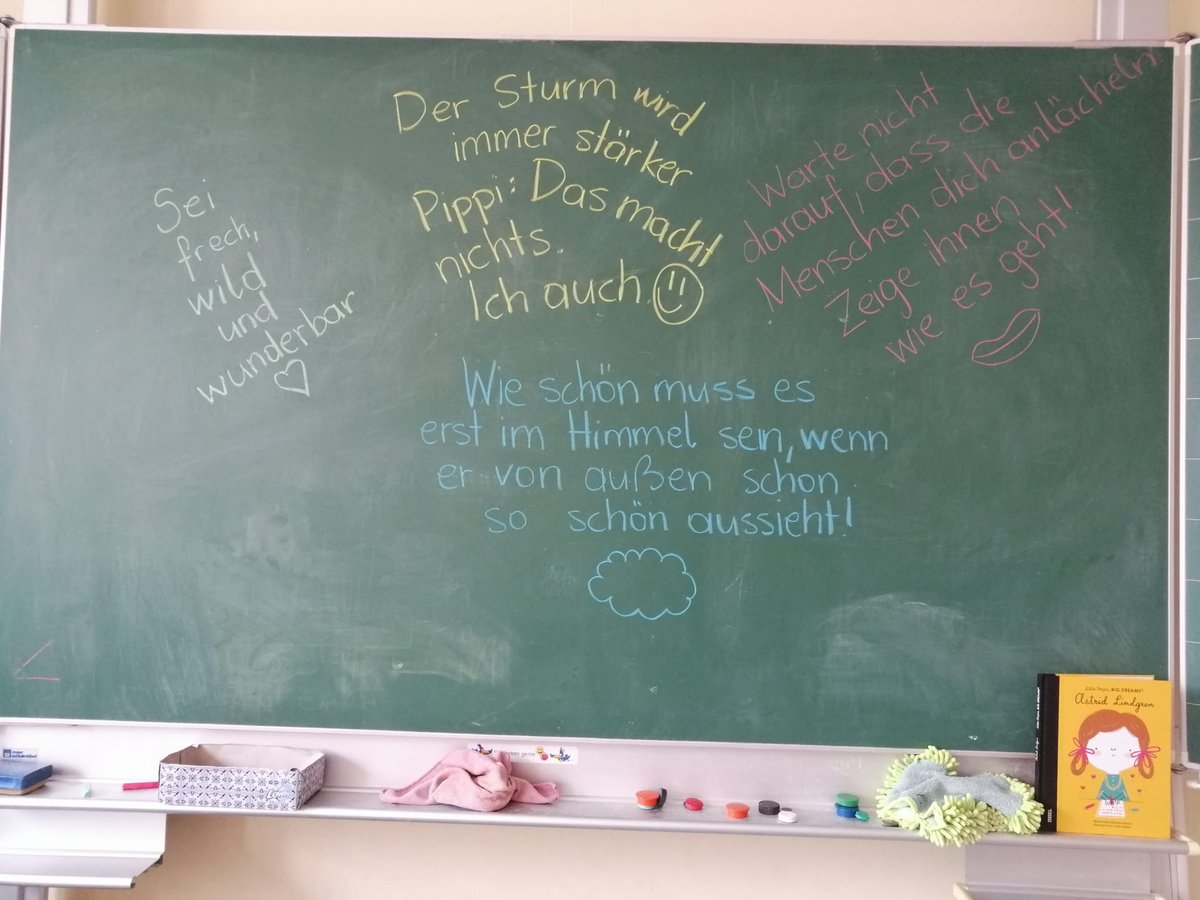 Sei
frech,
wild
und
wunderbar
Der Sturm wird
immer stärker
Pippi: Das macht
nichts.
Ich auch.
Warte nicht
darauf, dass die
Menschen dich anlächeln.
Zeige ihnen
wie es geht!
Wie schön muss es
erst im Himmel sein, wenn
er von außen schon
so schön aussieht!
Little People, BIG DREAMS
Astrid Lindgren